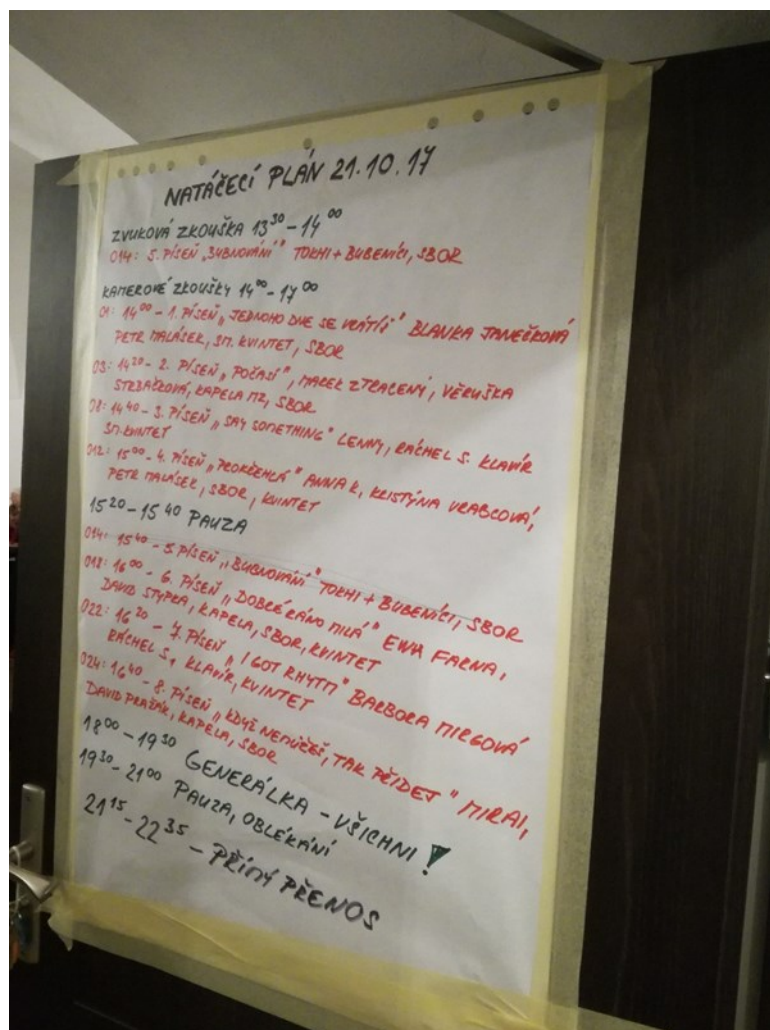 NATÁČECÍ PLÁN 21.10.17
ZVUKOVÁ ZKOUŠKA 13³⁰ – 14⁰⁰
014: 5. PÍSEŇ „BUBNOVÁNÍ" TOKHI + BUBENÍCI, SBOR
KAMEROVÉ ZKOUŠKY 14⁰⁰ – 17⁰⁰
01: 14⁰⁰ – 1. PÍSEŇ „JEDNOHO DNE SE VRÁTÍŠ" BLANKA JANEČKOVÁ
PETR MALÁSEK, SM. KVINTET, SBOR
03: 14²⁰ – 2. PÍSEŇ „POČASÍ", MAREK ZTRACENÝ, VĚRUŠKA
STRBAČKOVÁ, KAPELA MZ, SBOR
08: 14⁴⁰ – 3. PÍSEŇ „SAY SOMETHING" LENNY, RÁCHEL S. KLAVÍR
SM. KVINTET
012: 15⁰⁰ – 4. PÍSEŇ „PROKŘEHLÁ" ANNA K, KRISTÝNA VRABCOVÁ,
PETR MALÁSEK, SBOR, KVINTET
15²⁰ – 15⁴⁰ PAUZA
014: 15⁴⁰ – 5. PÍSEŇ „BUBNOVÁNÍ" TOKHI + BUBENÍCI, SBOR
018: 16⁰⁰ – 6. PÍSEŇ „DOBRÉ RÁNO MILÁ" EWA FARNA,
DAVID STYPKA, KAPELA, SBOR, KVINTET
022: 16²⁰ – 7. PÍSEŇ „I GOT RHYTM" BARBORA MIRGOVÁ
RÁCHEL S., KLAVÍR, KVINTET
024: 16⁴⁰ – 8. PÍSEŇ „KDYŽ NEMŮŽEŠ, TAK PŘIDEJ" MIRAI,
DAVID PRAŽÁK, KAPELA, SBOR
18⁰⁰ – 19³⁰ GENERÁLKA – VŠICHNI!
19³⁰ – 21⁰⁰ PAUZA, OBLÉKÁNÍ
21¹⁵ – 22³⁵ – PŘÍMÝ PŘENOS